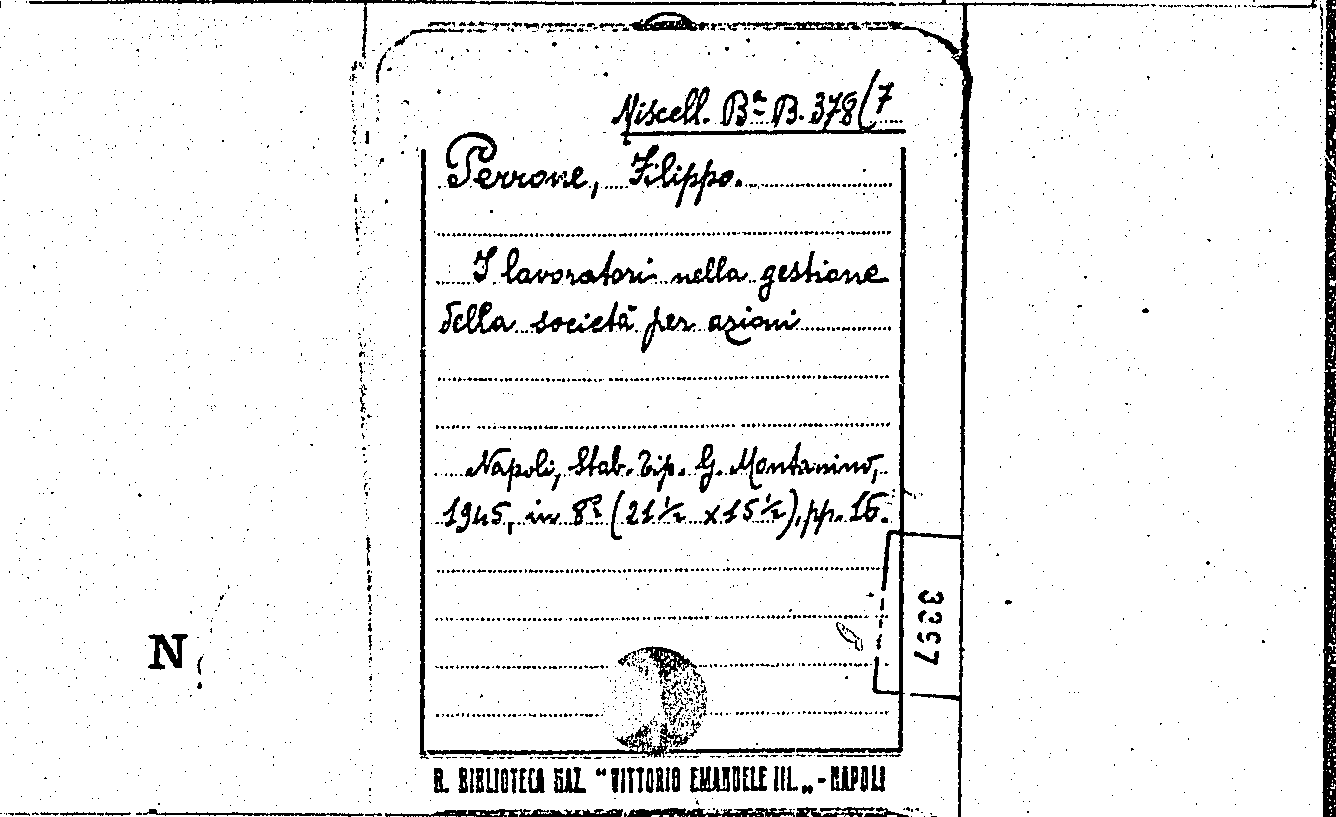 Miscell. Bª B. 378(7
Perrone, Filippo.
I lavoratori nella gestione
della società per azioni
Napoli, Stab. Tip. G. Montanino,
1945, in 8º (21½ x15½), pp. 16.
3397
N
R. BIBLIOTECA NAZ. "VITTORIO EMANUELE III„ - NAPOLI